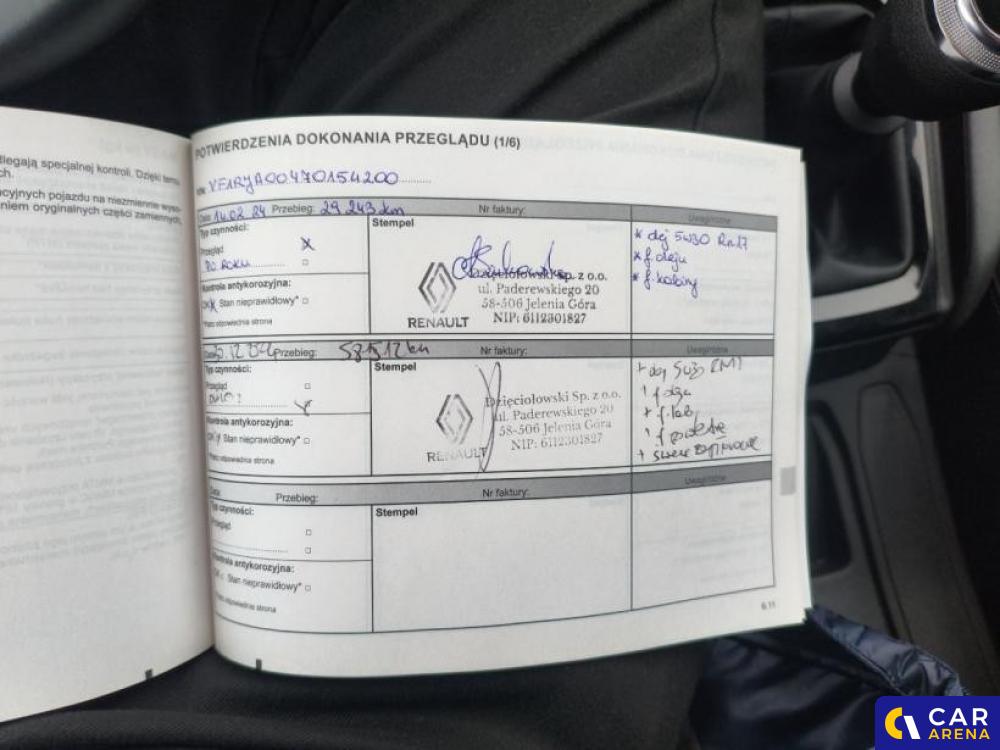 legają specjalnej kontroli. Dzięki temu
ch.
cyjnych pojazdu na niezmiennie wyso-
niem oryginalnych części zamiennych,
POTWIERDZENIA DOKONANIA PRZEGLĄDU (1/6)
VIN: VF1RJA00470154200
Data: 14.02.24 Przebieg: 29 243 km Nr faktury: Uwagi/różne
Typ czynności:
Przegląd x
PO ROKU
Kontrola antykorozyjna:
OK x Stan nieprawidłowy*
*Patrz odpowiednia strona
Stempel
RENAULT
Dzięciołowski Sp. z o.o.
ul. Paderewskiego 20
58-506 Jelenia Góra
NIP: 6112301827
* olej 5W30 Rn17
* f. oleju
* f. kabiny
Przebieg: 58 512 km Nr faktury: Uwagi/różne
Typ czynności:
Przegląd
Kontrola antykorozyjna:
OK Stan nieprawidłowy*
*Patrz odpowiednia strona
Stempel
RENAULT
Dzięciołowski Sp. z o.o.
ul. Paderewskiego 20
58-506 Jelenia Góra
NIP: 6112301827
+ olej 5W30 RN17
+ f. kab
Data: Przebieg: Nr faktury: Uwagi/różne
Typ czynności:
Przegląd
Kontrola antykorozyjna:
OK Stan nieprawidłowy*
*Patrz odpowiednia strona
Stempel
6.11
CAR
ARENA